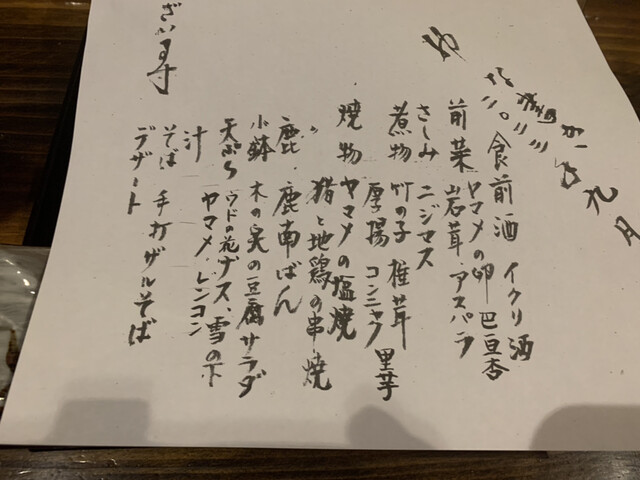 二〇二三 九月
食前酒 イクリ酒
前菜 ヤマメの卵 巴旦杏
岩茸 アスパラ
さしみ ニジマス
煮物 竹の子 椎茸
厚揚 コンニャク 里芋
焼物 ヤマメの塩焼
〃 猪と地鶏の串焼
鹿 鹿南ばん
小鉢 木の実の豆腐サラダ
天ぷら ウドの花 ナス、雪の下
ヤマメ、レンコン
汁
そば 手打ザルそば
デザート